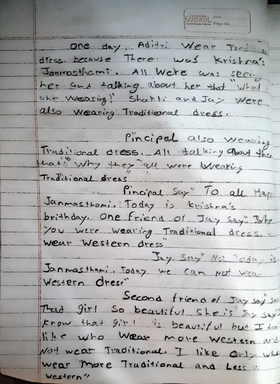 one day, Aditri Wear Traditi
dress because There was Krishna's
Janmasthami. All were was seein
her and talking about her that what
she wearing! Shakti and Jay were
also wearing Traditional dress.
Pincipal also weasing
Traditional dress. All talking about this
that "Why they all were wearing
Traditional dress"
Pincipal Say" To all Happ
Janmasthami. Today is Krishna's
brithday. One friend of Jay say" Why
You were wearing Traditional dress.
wear Western dress"
Jay Say" No Today is
Janmasthami. Today we can not wea
Western dress"
Second friend of Jay say" See
That girl so beautiful she is Jay say"
know that girl is beautiful but I don
like who wear more Western and
Not wear Traditional. I like Only who
wear More Traditional and Less
Western"